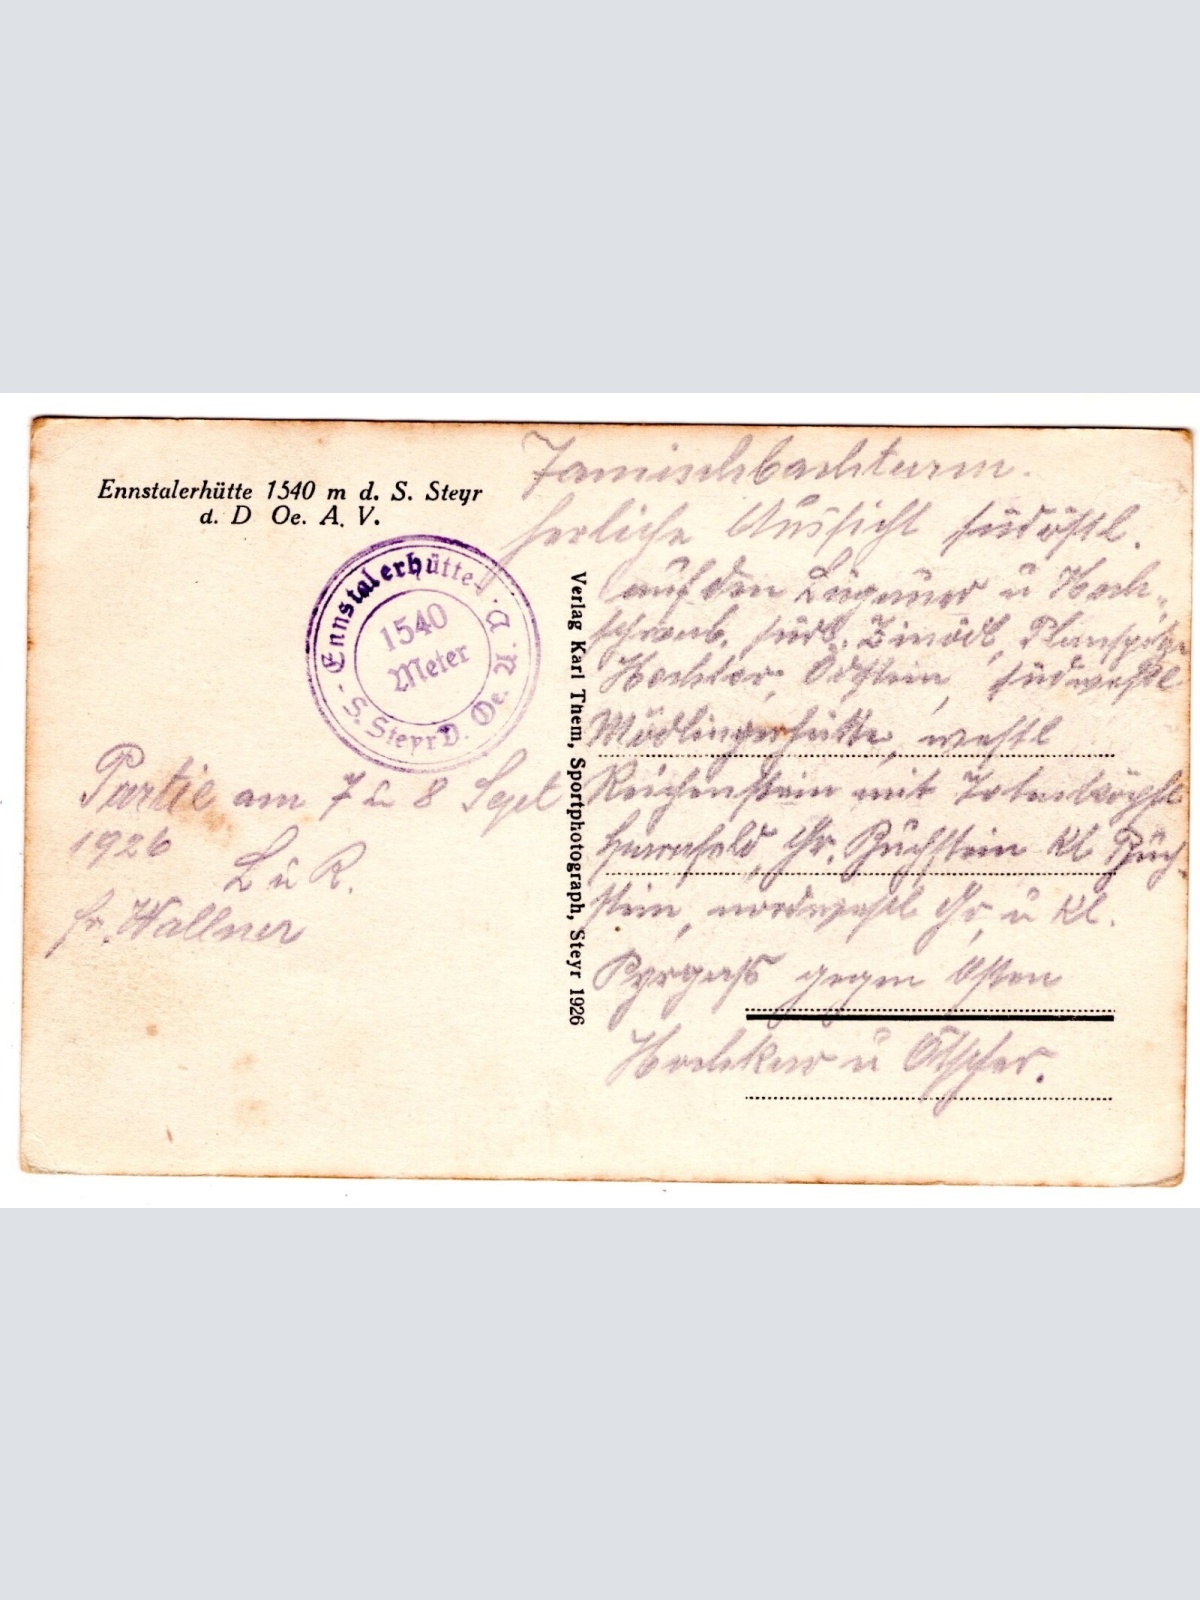 Ennstalerhütte 1540 m d. S. Steyr
d. D Oe. A. V.
Ennstalerhütte
S. Steyr D. Oe. A.
1540
Meter
Partie am 7 u 8 Sept
1926
L u R.
fr. Wallner
Verlag Karl Them, Sportphotograph, Steyr 1926
Tamischbachturm.
herliche Aussicht südöstl.
auf den Lugauer u Hoch-
südl. Zinödl, Planspitze
Hochtor, Ödstein, südwestl
Mödlingerhütte, westl
Reichenstein mit
Gr. Buchstein kl Buch-
stein, nordwestl Gr. u kl.
Pyrgass gegen Osten
Hochkar u Ötscher.